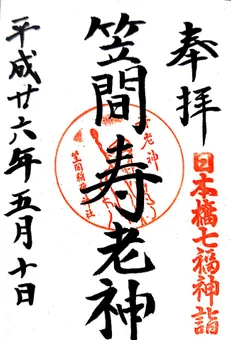 奉拝
日本橋七福神詣
笠間寿老神
寿老神
平成廿六年五月十日